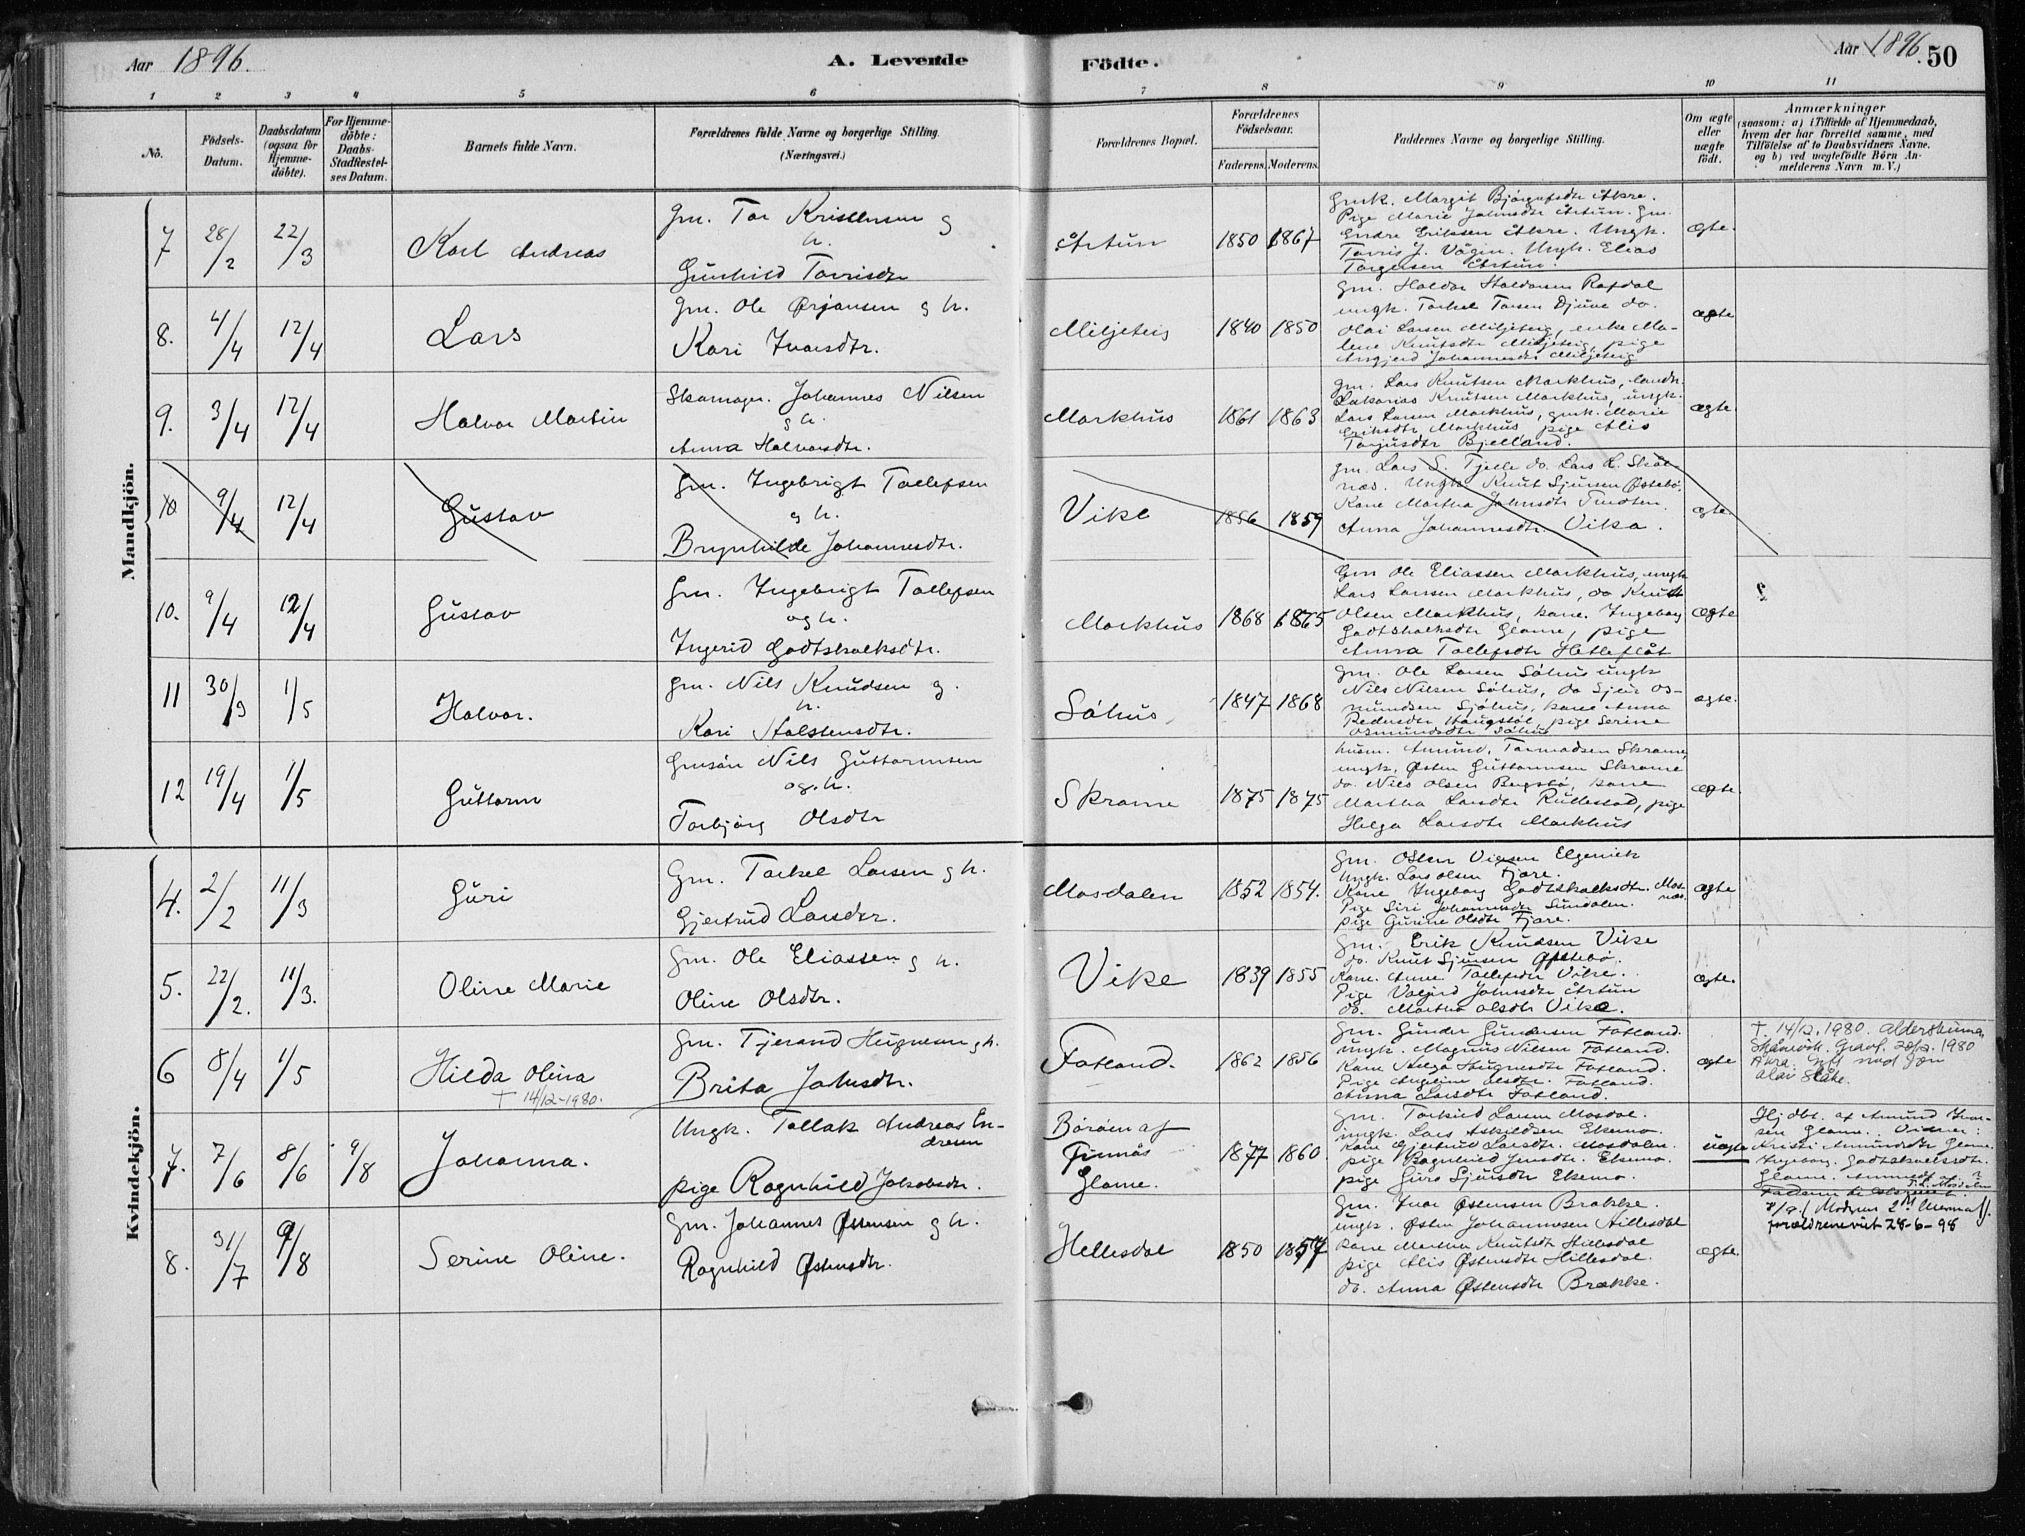 Aar 1896.
A. Levende
Födte.
Aar 1896.
50
1 2 3 4 5 6 7 8 9 10 11
No.
Födsels-Datum.
Daabsdatum (ogsaa for Hjemme-döbte).
For Hjemme-döbte: Daabs-Stadfæstel-ses Datum.
Barnets fulde Navn.
Forældrenes fulde Navne og borgerlige Stilling. (Næringsvei.)
Forældrenes Bopæl.
Forældrenes Födselsaar.
Faderens. Moderens.
Faddernes Navne og borgerlige Stilling.
Om ægte eller uægte födt.
Anmærkninger
(saasom: a) i Tilfælde af Hjemmedaab,
hvem der har forrettet samme, med
Tilföielse af to Daabsvidners Navne.
og b) ved uægtefödte Börn An-
melderens Navn m. V.)
Mandkjön.
7 28/2 22/3
Karl Andreas
Gm. Tor Kristensen og
h.
Gunhild Torrisdtr
Årtun
1850 1867
Gmk. Margit Bjørgufsdtr Åkre.
Pige Marie Johnsdtr Årtun. Gm.
Endre Eriksen Åkre. Ungk.
Torris J. Vågen. Ungk. Elias
Torgersen Årtun.
ægte.
8. 4/4 12/4
Lars
Gm. Ole Ørjansen g h.
Kari Ivarsdtr.
Miljeteig
1840 1850
Gm. Haldor Haldorsen Rafdal
ungk. Torkel Torsen Djuve do.
Olai Larsen Miljeteig, enke Ma-
lene Knutsdtr Miljeteig, pige
Angjerd Johannesdtr Miljeteig
ægte
9. 3/4 12/4
Halvor Martin
Skomager. Johannes Nilsen
g h.
Anna Halvorsdtr.
Markhus
1861 1863
gm. Lars Knutsen Markhus, landh.
Sakarias Knutsen Markhus, ungk.
Lars Larsen Markhus, gmk. Marie
Eriksdtr Markhus pige Alis
Torjusdtr Bjelland.
ægte.
10 9/4 12/4
Gustav
Gm. Ingebrigt Tollefsen
g h.
Brynhilde Johannesdtr.
Vike
1856 1859
gm. Lars S. Tjelle do. Lars L. Skål-
nes. Ungk. Knut Sjursen Østebø.
Kone Martha Johnsdtr Tindten.
Anna Johannesdtr. Vika.
ægte
10. 9/4 12/4
Gustav
Gm. Ingebrigt Tollefsen
og h.
Ingerid Godtskalksdtr.
Markhus
1868 1865
Gm Ole Eliassen Markhus, ungk
Lars Larssen Markhus, do Knut
Olsen Markhus, kone. Ingeborg
Godtskalksdtr Glame, pige
Anna Tollefsdtr Hetleflåt
ægte
11 30/3 1/5
Halvor.
gm. Nils Knudsen g.
h.
Kari Halstensdtr.
Såhus
1847 1868
gm. Ole Larsen Såhus ungk
Nils Nilsen Såhus, do Sjur Os-
mundsen Sjåhus, kone Anna
Pedersdtr Haugstøl, pige Serine
Osmundsdtr Såhus
ægte.
12 19/4 1/5
Guttorm
Gmsøn Nils Guttormsen
og h.
Torbjørg Olsdtr
Skrame
1875 1875
husm. Amund. Tormodsen Skrame,
ungk. Østen Guttormsen Skrame
do. Nils Olsen Bergstø, kone
Martha Larsdtr Rullestad, pige
Helga Larsdtr Markhus
ægte.
Kvindekjön.
4. 2/2 11/3
Guri
Gm. Torkel Larsen g h.
Gjertrud Larsdtr.
Mosdalen
1852 1854.
Gm. Osten Vigesen Elgenick
Ungk. Lars Olsen Fjære.
Kone Ingeborg Godtskalksdtr. Mos-
nes.
Pige Siri Johannesdtr Sundalen.
pige Gurine Olsdtr Fjære.
ægte
5. 22/2. 11/3.
Oline Marie
Gm. Ole Eliassen g h.
Oline Olsdtr.
Vike
1839 1855
Gm. Erik Knudsen Vike
do. Knut Sjursen Østebø.
Kone. Anne Tollefsdtr Vike.
Pige Valgjerd Johnsdtr Årtun
do. Martha Olsdtr Vike.
ægte.
6 8/4 1/5
Hilda Olina
† 14/12-1980.
Gm. Tjerand Heignesen g h.
Brita Johnsdtr.
Fatland.
1862 1856
Gm. Gunder Gundersen Fatland.
ungk. Magnus Nilsen Fatland.
Kone Helga Haugnesdtr Fatland.
Pige Olsdtr. Fatland.
Anna Larsdtr Fatland.
ægte
† 14/12.1980. Aldersheimen,
Skånevik. Gravf. 20/12.1980
Åkra. Gift med Jon
Olav Slåke.
7. 7/6 8/6 9/8
Johanna.
Ungk. Tollak Andreas En-
dresen
pige Ragnhild Jakobsdtr.
Børøen af
Finnås
Glame.
1877 1860
Gm. Torkild Larsen Mosdal.
ungk. Lars Askildsen Ekemo.
Kone Gjertrud Larsdtr. Mosdalen.
pige Ragnhild Jensdtr. Ekemo.
pige Guro Sjursdtr Ekemo.
uægte
Hj. dbt. af Amund Iver-
sen Glame. Vidner:
Kristi Amundsdtr Glame.
Ingeborg. Godtskalksdtr.
Glame. Anmeldt af
T. L. Mosdalen
8/8. Modrens 2det Leiermaal.
forældrene viet 28-6-98
8. 31/7 9/8
Serine Oline.
Gm. Johannes Østensen g h.
Ragnhild Østensdtr.
Hellesdal
1850 1857
Gm. Ivar Østensen Brakke.
ungk. Østen Johannesen Hillesdal
kone Martha Knutsdtr Hillesdal
pige Alis Østensdtr Hillesdal.
do. Anna Østensdtr Brakke.
ægte.